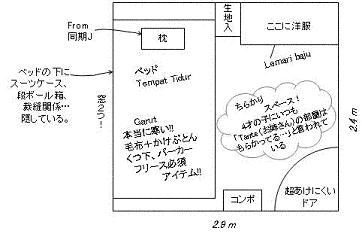 From
同期J
枕
生地入
ここに洋服
Lemari baju
ベッドの下に
スーツケース、
段ボール箱、
裁縫関係…
隠している。
ベッド
Tempat Tidur
Garut
本当に寒い!!
毛布+かけぶとん
くつ下、パーカー
フリース必須
アイテム!!
ちらかり スペース!
4才の子にいつも
「Tante(お姉さん)の部屋は
ちらかってる…」と言われて
いる
コンポ
超あけにくい
ドア
2.4 m
2.9 m